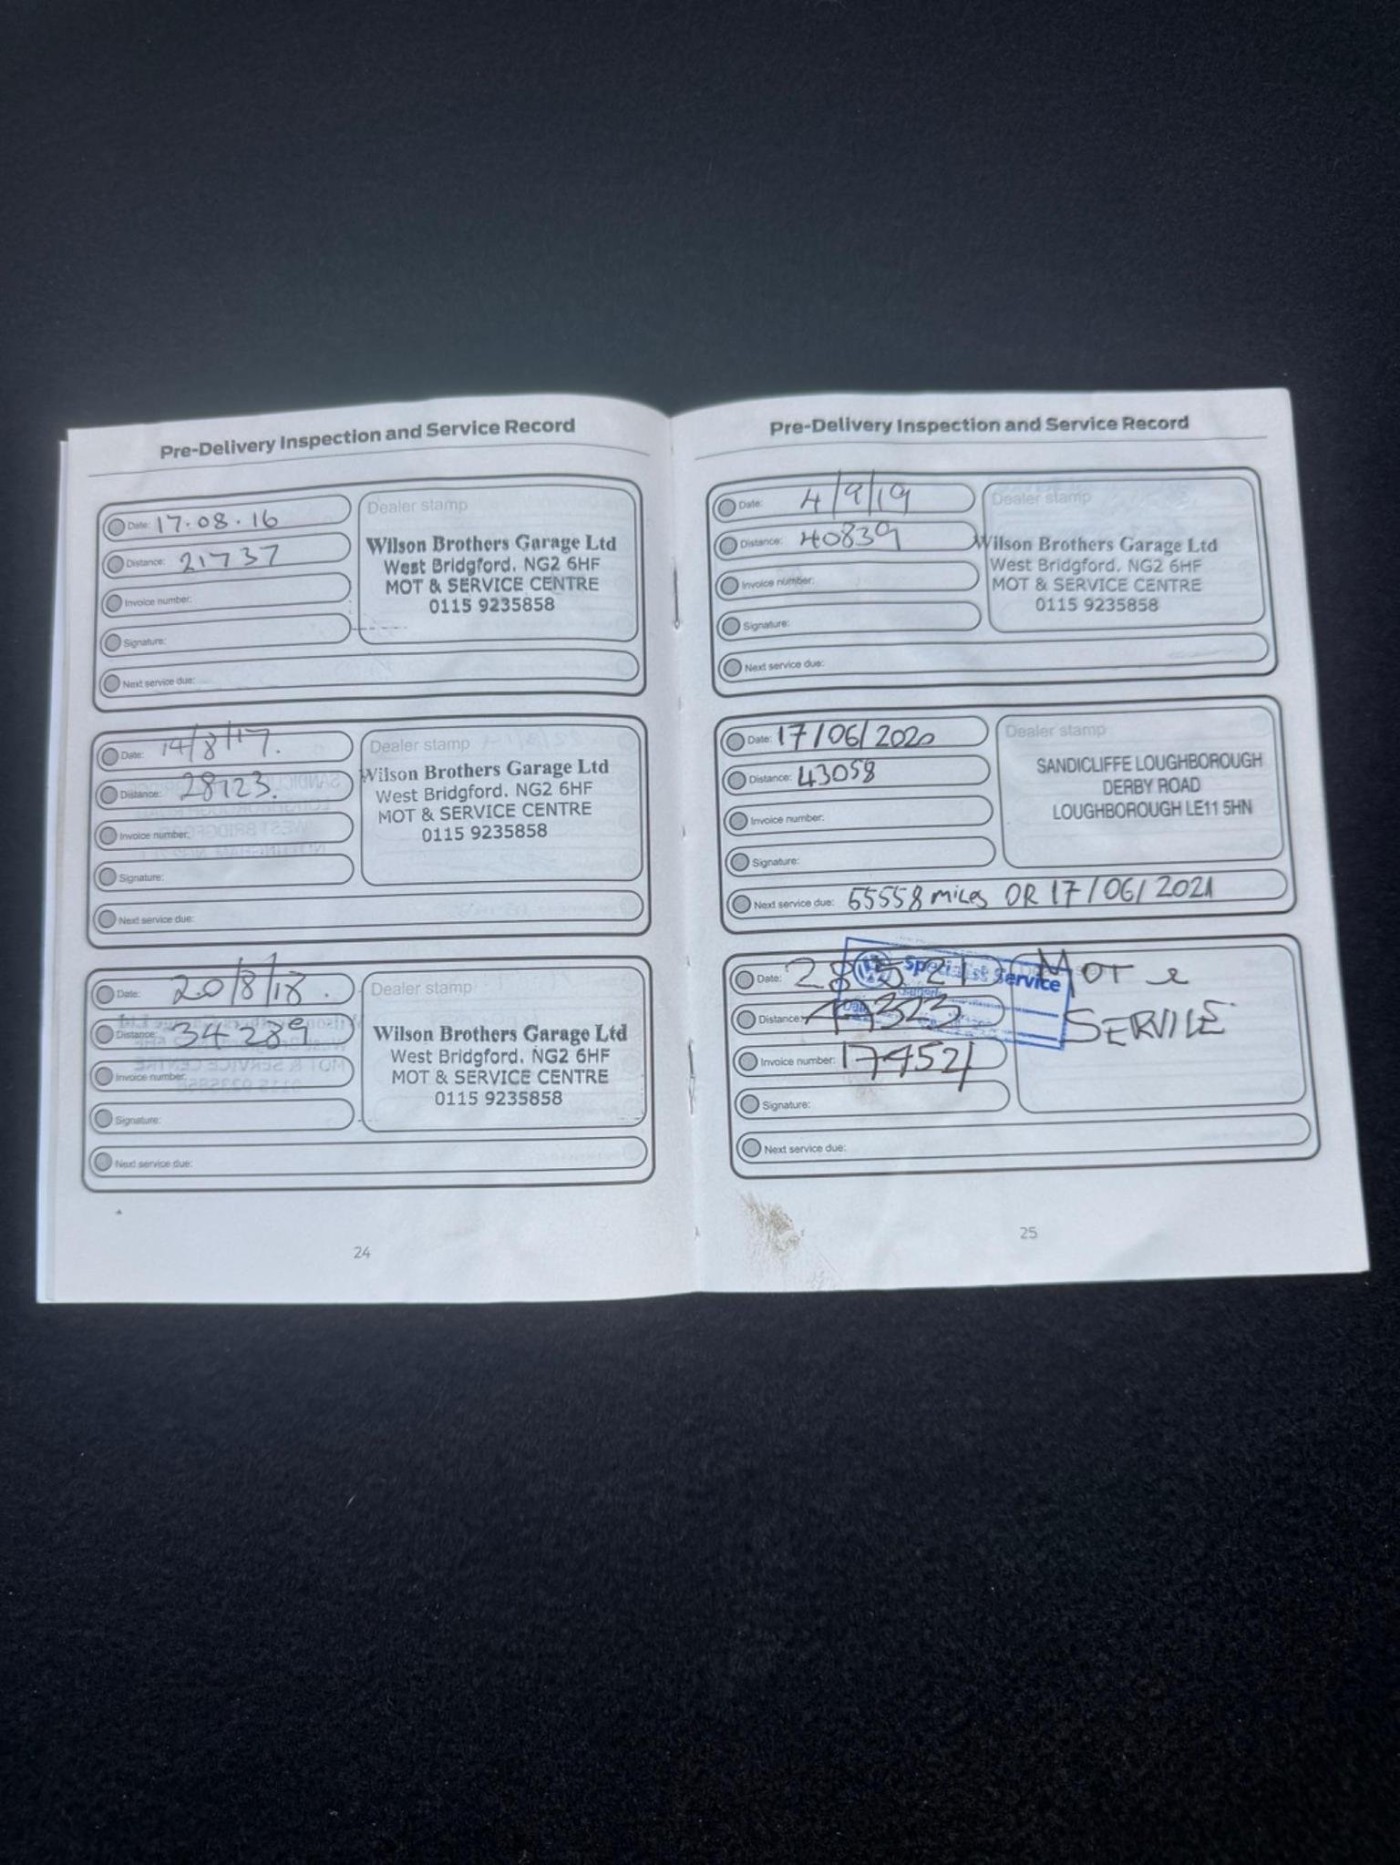 Pre-Delivery Inspection and Service Record
Date: 17.08.16
Distance: 21737
Invoice number:
Signature:
Next service due:
Dealer stamp
Wilson Brothers Garage Ltd
West Bridgford. NG2 6HF
MOT & SERVICE CENTRE
0115 9235858
Date: 14/8/17.
Distance: 28123.
Invoice number:
Signature:
Next service due:
Dealer stamp
Wilson Brothers Garage Ltd
West Bridgford. NG2 6HF
MOT & SERVICE CENTRE
0115 9235858
Date: 20/8/18.
Distance: 34289
Invoice number:
Signature:
Next service due:
Dealer stamp
Wilson Brothers Garage Ltd
West Bridgford. NG2 6HF
MOT & SERVICE CENTRE
0115 9235858
24
Pre-Delivery Inspection and Service Record
Date: 4/9/19
Distance: 40839
Invoice number:
Signature:
Next service due:
Dealer stamp
Wilson Brothers Garage Ltd
West Bridgford. NG2 6HF
MOT & SERVICE CENTRE
0115 9235858
Date: 17/06/2020
Distance: 43058
Invoice number:
Signature:
Next service due: 55558 miles OR 17/06/2021
Dealer stamp
SANDICLIFFE LOUGHBOROUGH
DERBY ROAD
LOUGHBOROUGH LE11 5HN
Date:
Distance:
Invoice number: 174521
Signature:
Next service due:
Specialist Service
MOT e
SERVICE
25